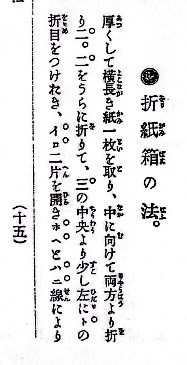 ◉折紙箱の法。
厚くして横長き紙一枚を取り、中に向けて両方より折
り二。二をうらに折りて、三の中央より少し左にトの
折目をつけおき、イロ二片を開きホヘとハニ線により
(十五)